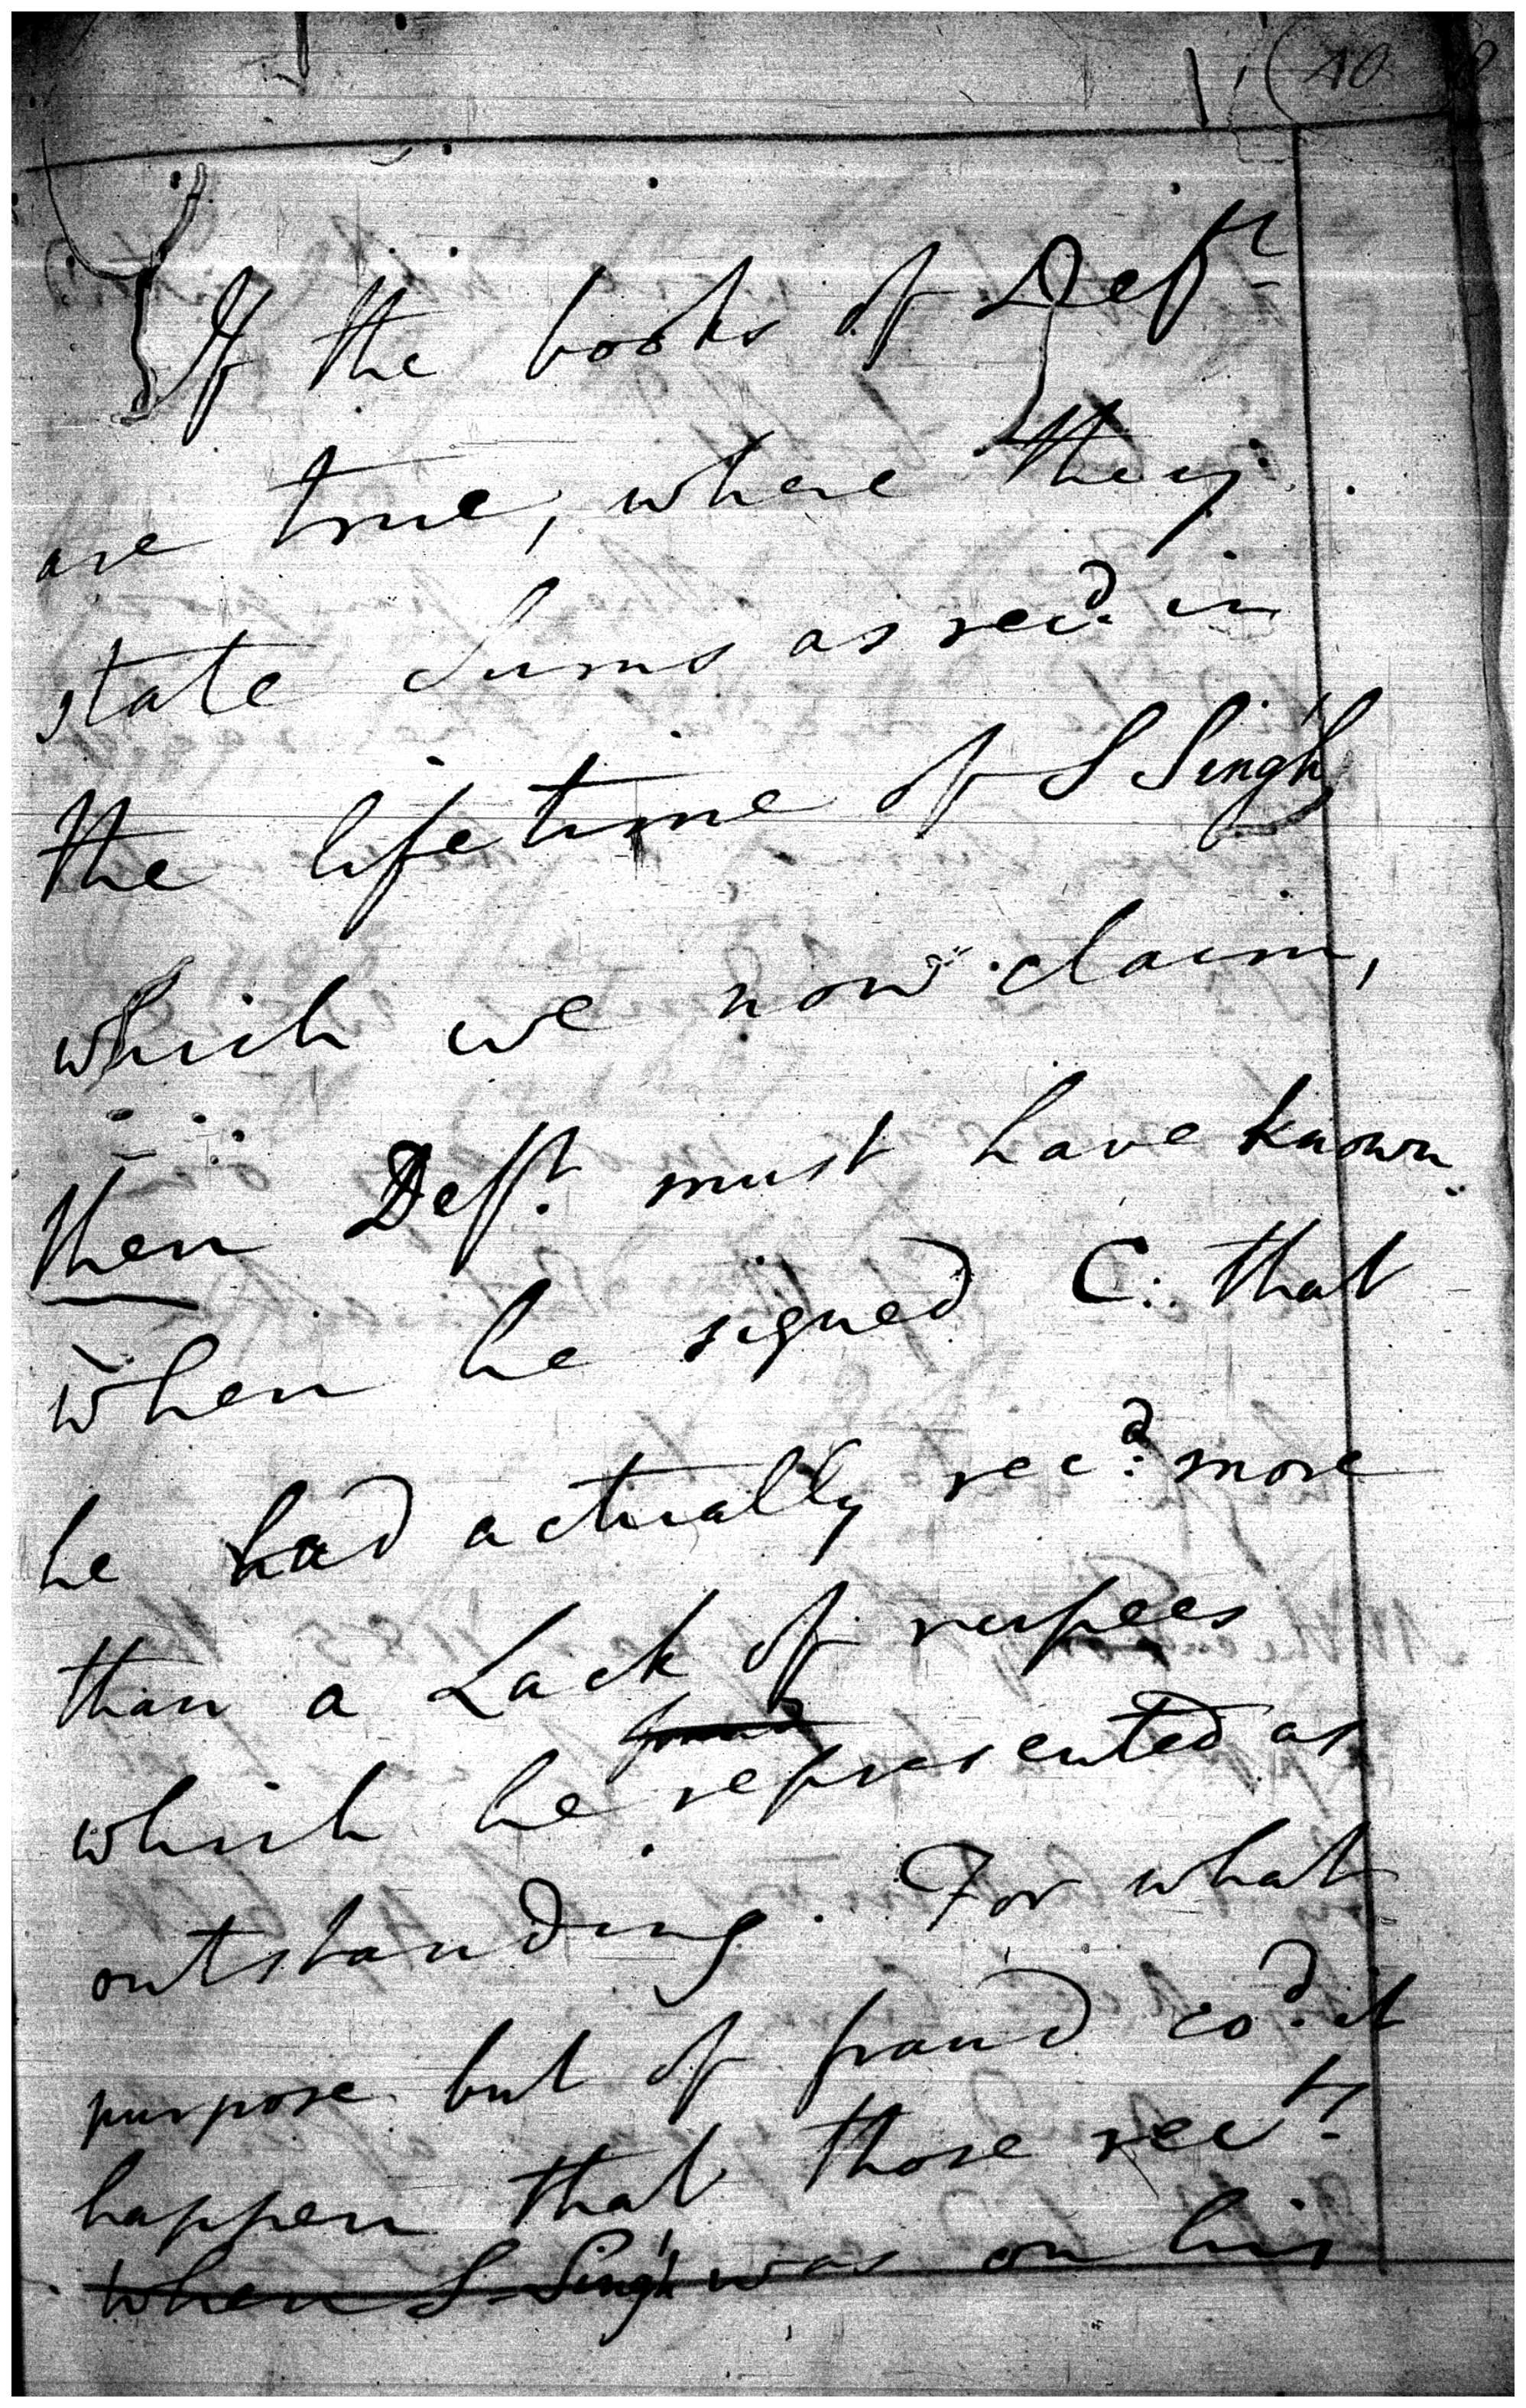 (40
If the books of Deft
are true, where they
state sums as recd. in
the lifetime of S Singh
which we now claim,
then Deft. must have known
when he signed C. that
he had actually recd. more
than a Lack of rupees
which he represented as
outstanding. For what
purpose but of fraud cod. it
happen that those rects.
when S Singh was on his